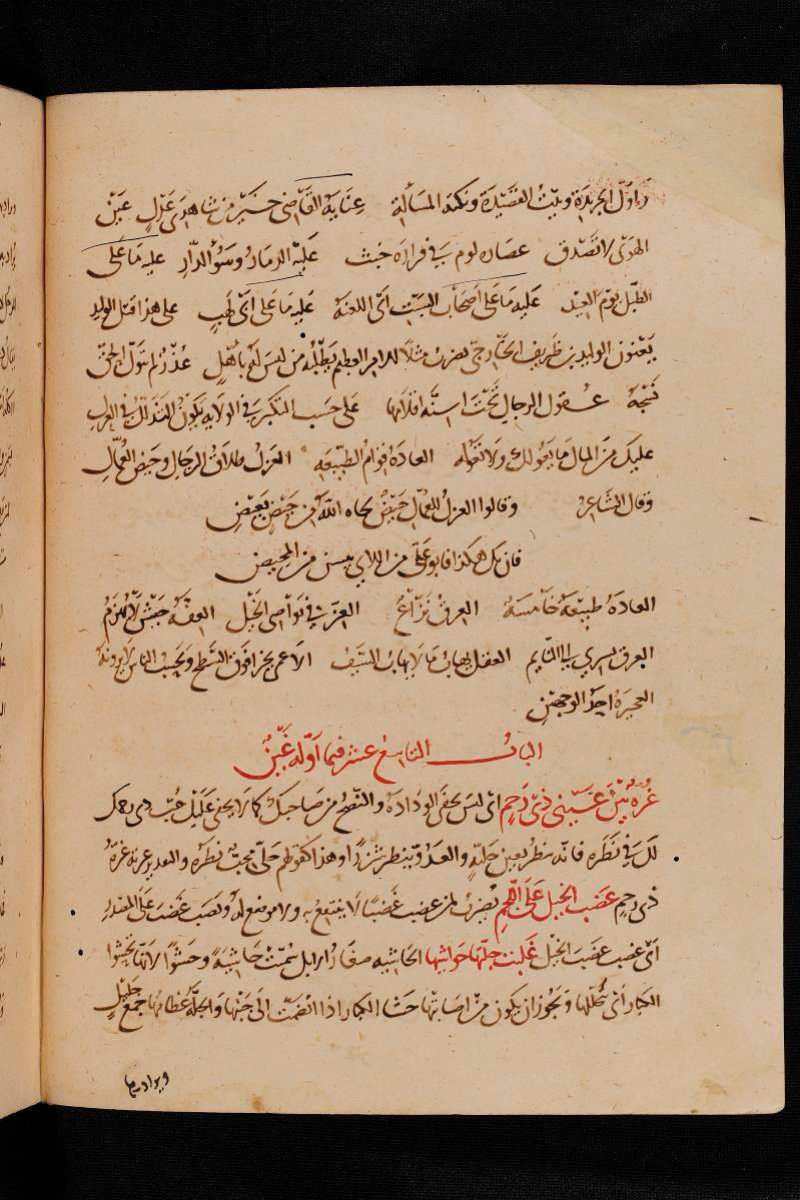 واول الجريدة وبيت القصيدة ونكتة المسألة عناية القاضي خير من شاهدي عدل عين
الهوى لا تصدق عصارة لوم في قرارة خبث عليه الدمار وسوء الدار عليه ما على
الطبل يوم العيد عليه ما على اصحاب السبت اى اللعنة عليه ما على ابى لهب على هذا قتل الوليد
يعنون الوليد بن طريف الخارجي يضرب مثلا للامر العظيم يطلبه من ليس له باهل عذر لم يتول الحق
نسجه عقول الرجال تحت اسنة اقلامها على حسب التكبر في الولاية يكون التذلل في العزل
عليك من المال ما يعولك ولا تعوله العادة قوام الطبيعة العزل طلاق الرجال وحيض العمال
وقال الشاعر وقالوا العزل للعمال حيض لحاه الله من حيض بغيض
فان يك هكذا فابو على من اللاي يئسن من المحيض
العادة طبيعة خامسة العرق نزاع العز في نواصى الخيل العفة جيش لا يهزم
العرق يسري الى النايم العقل يهاب ما لا يهاب السيف الاعمى يخرا فوق السطح ويحسب الناس لا يرونه
العجيزة احد الوجهين
الباب التاسع عشر فيما اوله غين
غرة بين عيني ذى رحم اى ليس يخفى الودادة والنصح من صاحبك كما لا يخفى عليك حب ذى رحمك
لك في نظره فانه ينظر بعين جلية والعدو ينظر شزرا وهذا كقولهم جلى محب نظره والتقدير غرته غرة
ذى رحم غضب الخيل على اللجم يضرب لمن غضب غضبا لا ينتفع به ولا موضع له ونصب غضب على المصدر
اى غضب غضب الخيل غلبت جلتها حواشيها الحاشية صغار الابل سميت حاشية وحشوا لانها تحشوا
الكبار اى تخللها ويجوز ان يكون من اصابتها حشا الكبار اذا انضمت الى جنبها والجلة عظامها جمع جليل
ويراد بها